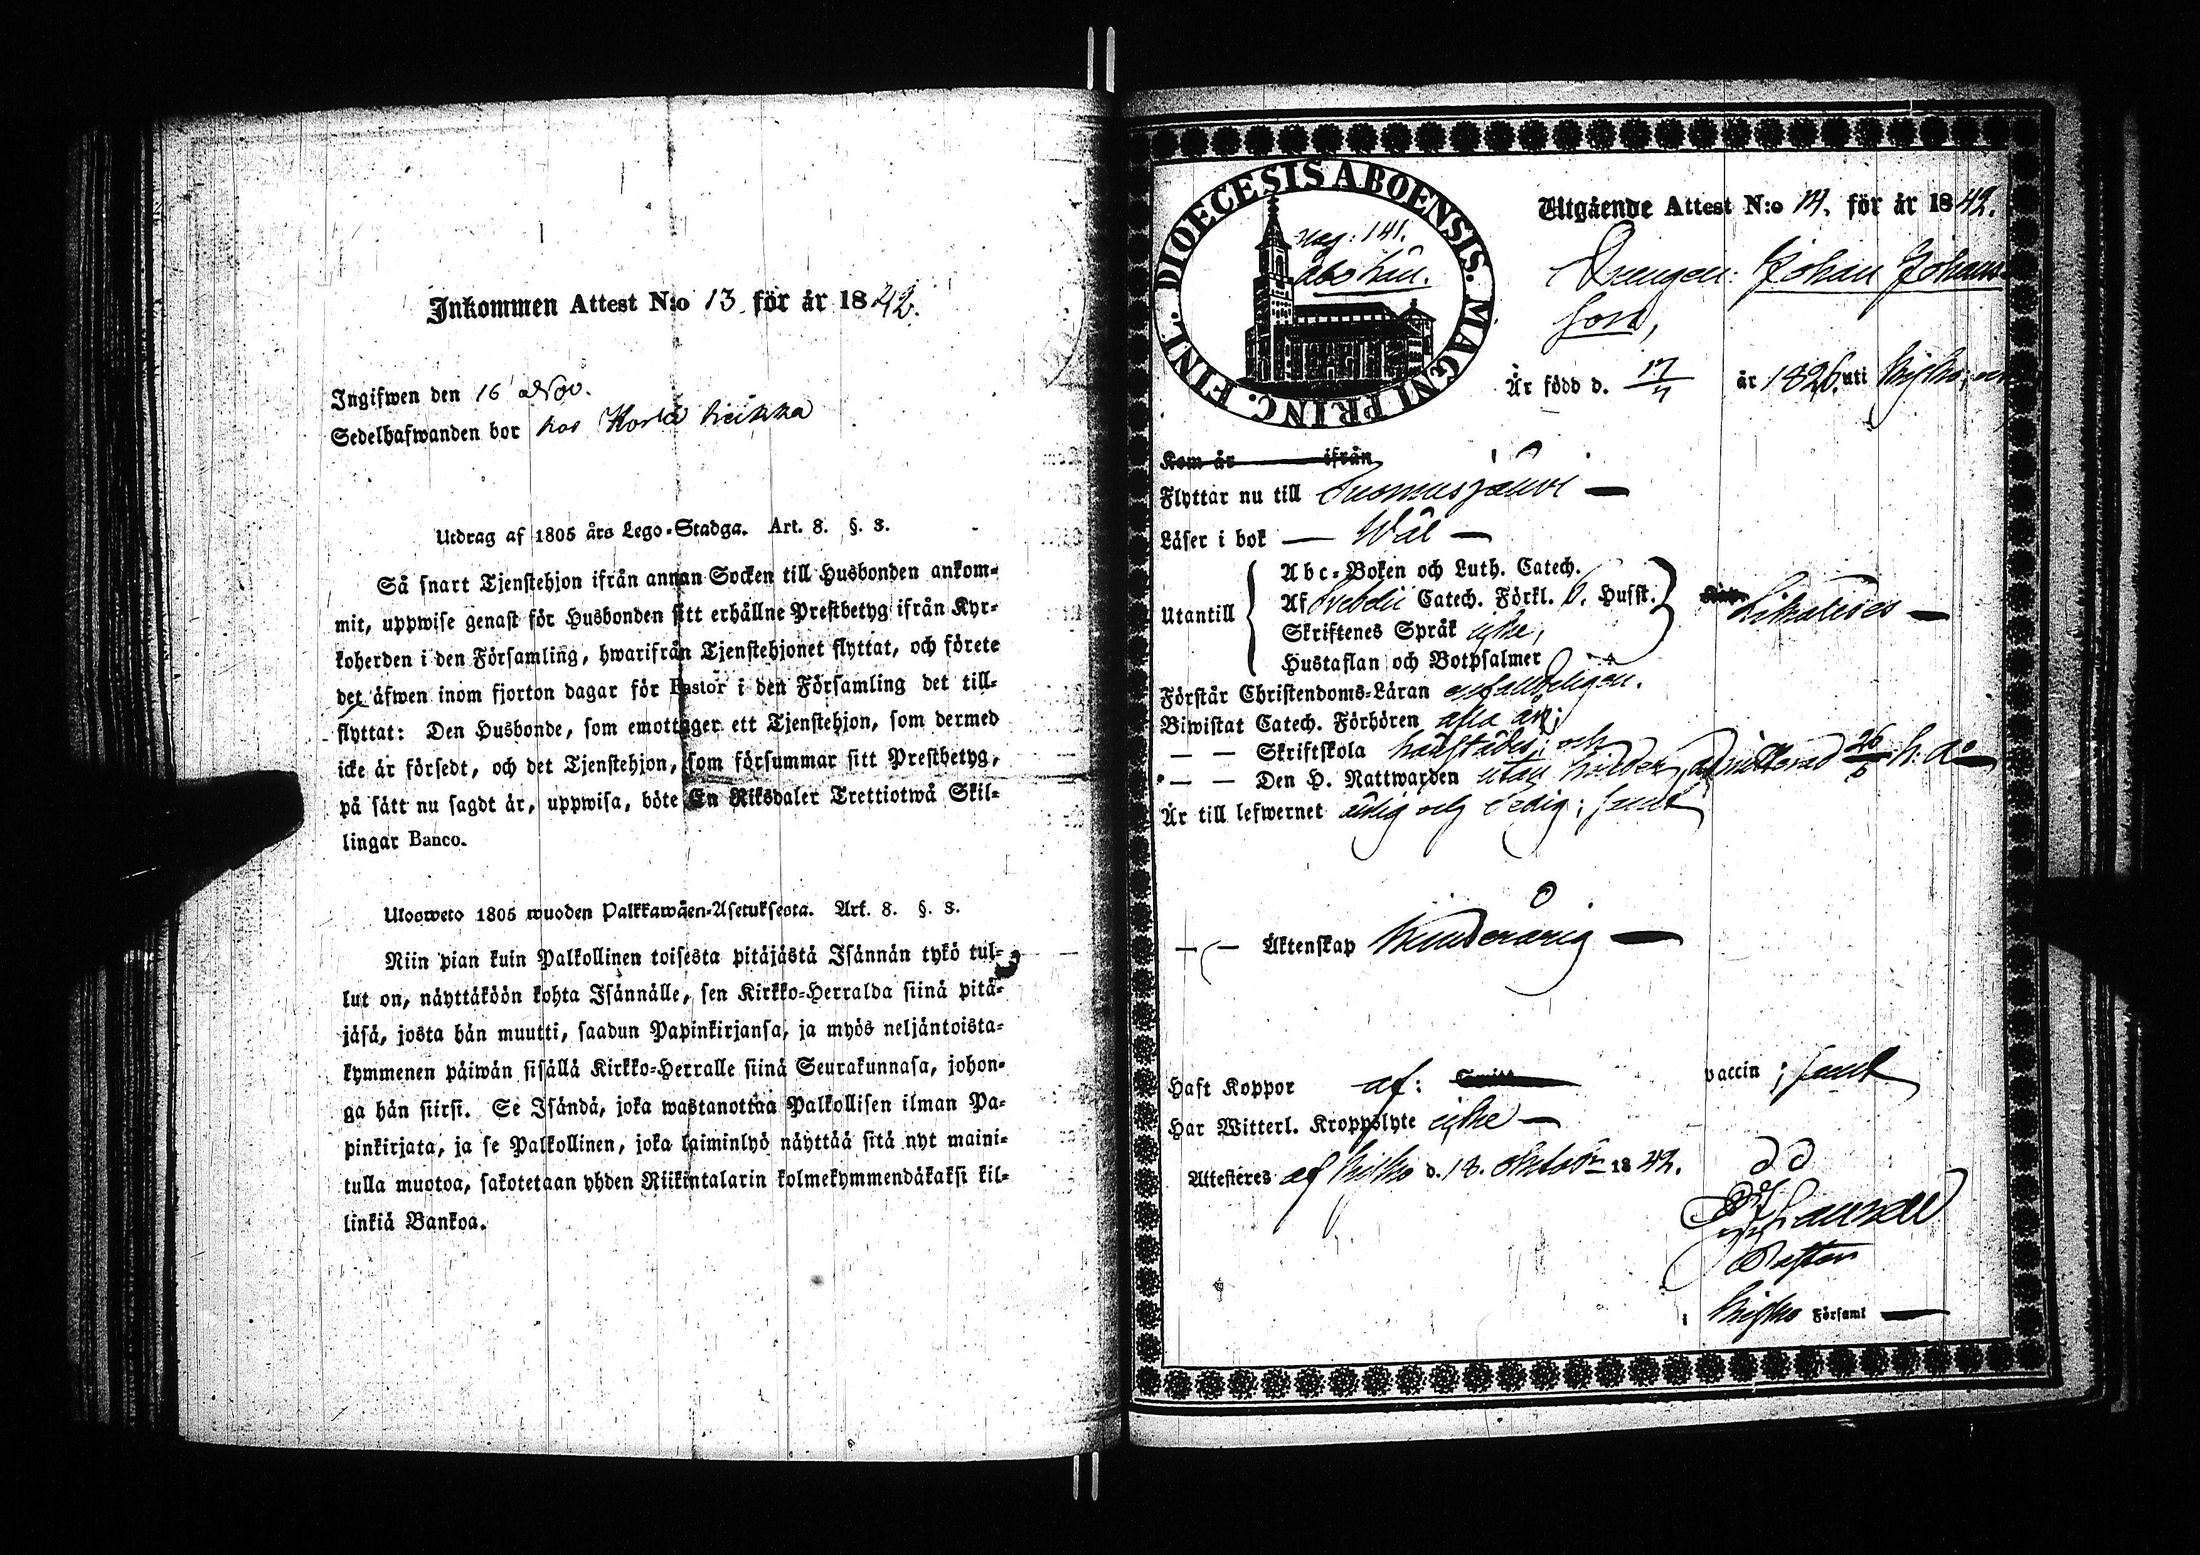 Inkommen Attest N:o 13 för år 1842.
Ingifwen den 16 Nov.
Sedelhafwanden bor hos
Utdrag af 1805 års Lego-Stadga. Art. 8. §. 3.
Så snart Tjenstehjon ifrån annan Socken till Husbonden ankom-
mit, uppwise genast för Husbonden sitt erhållne Prestbetyg ifrån Kyr-
koherden i den Församling, hwarifrån Tjenstehjonet flyttat, och förete
det äfwen inom fjorton dagar för Pastor i den Församling det till-
flyttat: Den Husbonde, som emottager ett Tjenstehjon, som dermed
icke är försedt, och det Tjenstehjon, som försummar sitt Prestbetyg,
på sätt nu sagdt är, uppwisa, böte En Riksdaler Trettiotwå Skil-
lingar Banco.
Ulosweto 1805 wuoden Palkkawäen-Asetuksesta. Art. 8. §. 3.
Niin pian kuin Palkollinen toisesta pitäjästä Isännän tykö tul-
lut on, näyttäköön kohta Isännälle, sen Kirkko-Herralda siinä pitä-
jäsä, josta hän muutti, saadun Papinkirjansa, ja myös neljäntoista-
kymmenen päiwän sisällä Kirkko-Herralle siinä Seurakunnasa, johon-
ga hän siirsi. Se Isändä, joka wastanottaa Palkollisen ilman Pa-
pinkirjata, ja se Palkollinen, joka laiminlyö näyttää sitä nyt maini-
tulla muotoa, sakotetaan yhden Riikintalarin kolmekymmendäkaksi kil-
linkiä Bankoa.
DIOECESIS ABOENSIS. MAGNI PRINC. FINL.
pag: 141.
Utgående Attest N:o 14. för år 1842.
Drengen: Johan Johans-
son,
Är född d. 17 år 1826 uti Kisko,
Kom år ifrån
Flyttar nu till Suomusjärvi
Läser i bok — Wäl —
Utantill
Abc-Boken och Luth. Catech.
Af Svebelii Catech. Förkl. Husst.
Skriftenes Språk icke,
Hustaflan och Botpsalmer
Likaledes —
Förstår Christendoms-Läran
Biwistat Catech. Förhören alla år;
— — Skriftskola härstädes; och
— — Den H. Nattwarden utan hinder, admitterad 26/6 h. a. —
Är till lefwernet ärlig och sedig; samt
— — Äktenskap Minderårig —
Haft Koppor af: vaccin; samt
Har Witterl. Kroppslyte icke —
Attesteres af Kisko d. 18. Oktobr 1842.
Pastor
i Kisko Församl —